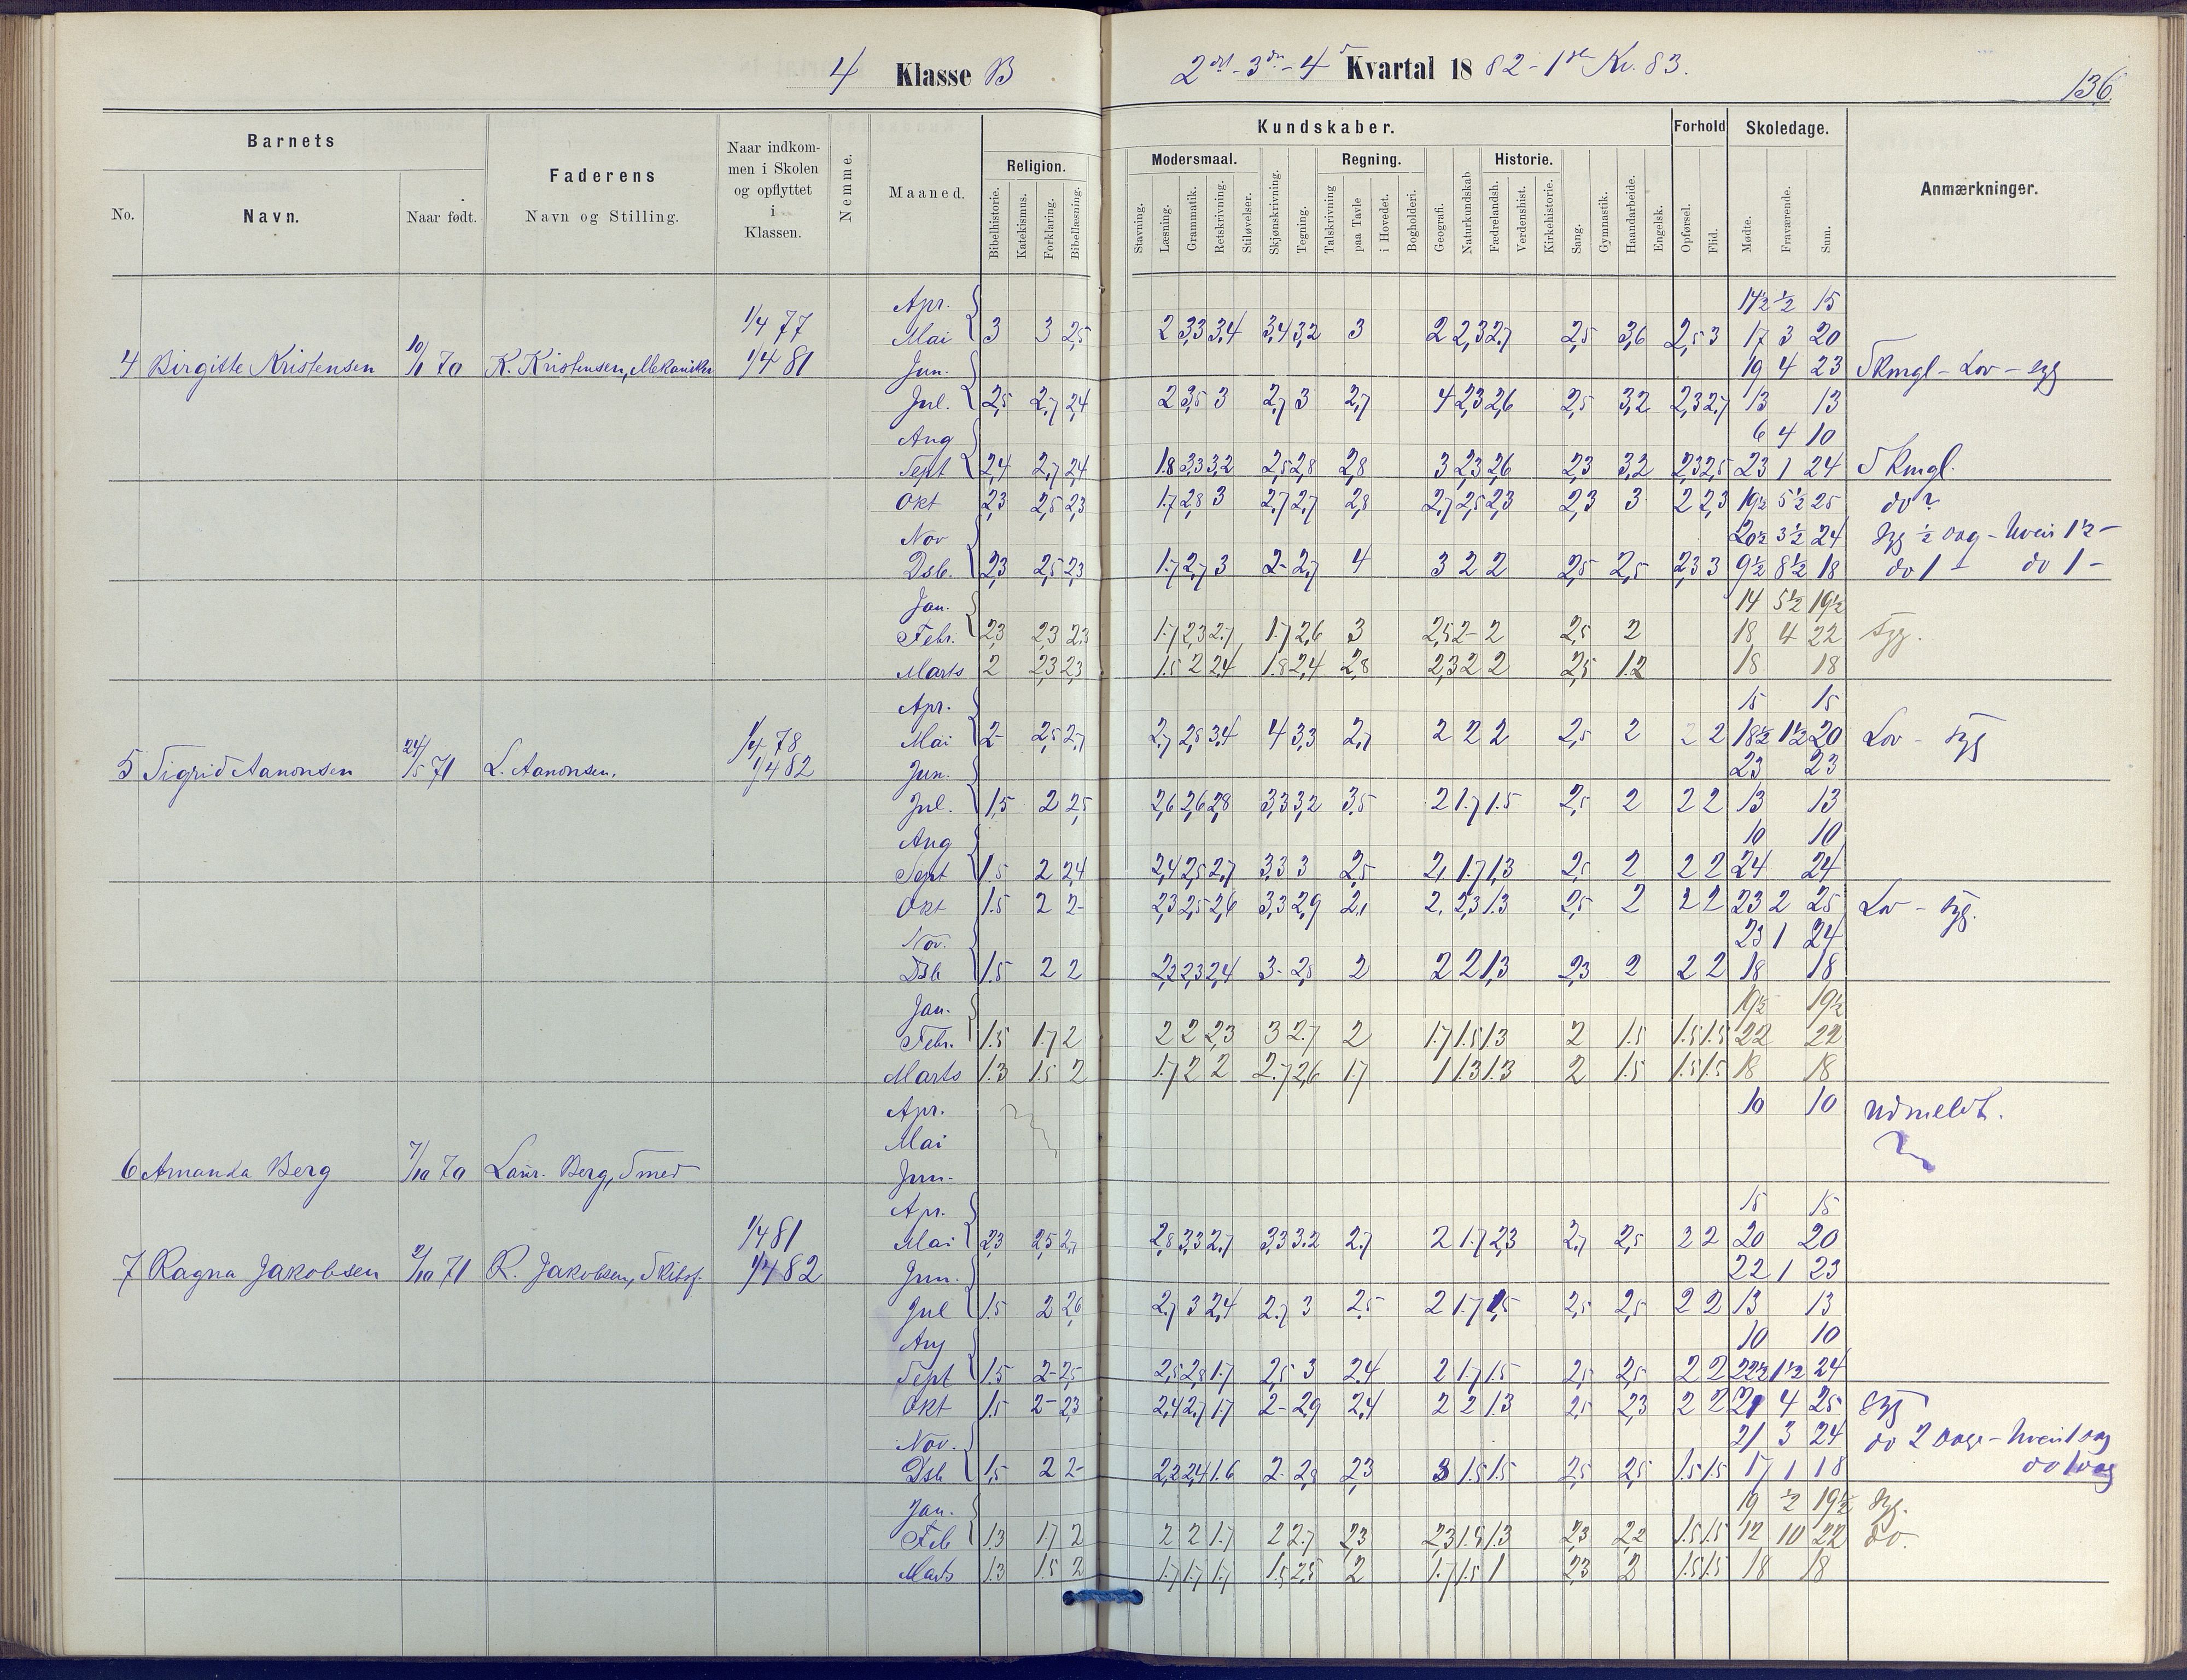 4 Klasse B 2det - 3die - 4 Kvartal 1882 - 1ste Kv. 83.
136.
Barnets
Faderens
Navn og Stilling.
Naar indkom-
men i Skolen
og opflyttet
i
Klassen.
Nemme.
Maaned.
Kundskaber.
Forhold
Skoledage.
Anmærkninger.
No.
Navn.
Naar født.
Religion.
Modersmaal.
Regning.
Historie.
Bibelhistorie.
Katekismus.
Forklaring.
Bibellæsning.
Stavning.
Læsning.
Grammatik.
Retskrivning.
Stiløvelser.
Skjønskrivning.
Tegning.
Talskrivning
paa Tavle
i Hovedet.
Bogholderi.
Geografi.
Naturkundskab
Fædrelandsh.
Verdenshist.
Kirkehistorie.
Sang.
Gymnastik.
Haandarbeide.
Engelsk.
Opførsel.
Flid.
Mødte.
Fraværende.
Sum.
Apr. 14½ ½ 15
1/4 77 Mai 3 3 2,5 2 3,3 3,4 3,4 3,2 3 2 2,3 2,7 2,5 3,6 2,5 3 17 3 20
4 Birgitte Kristensen 10/1 70 K. Kristensen, Mekaniker 1/4 81 Jun. 19 4 23 Skmgl - Lov - syg
Jul. 2,5 2,7 2,4 2 3,5 3 2,7 3 2,7 4 2,3 2,6 2,5 3,2 2,3 2,7 13 13
Aug 6 4 10
Sept 2,4 2,7 2,4 1.8 3,3 3,2 2,5 2,8 2,8 3 2,3 2,6 2,3 3,2 2,3 2,5 23 1 24 Skmgl.
Okt 2,3 2,5 2,3 1.7 2,8 3 2,7 2,7 2,8 2,7 2,5 2,3 2,3 3 2 2,3 19½ 5½ 25 do
Nov 20½ 3½ 24 syg ½ dag - hvein 1½ -
Dsb. 2,3 2,5 2,3 1.7 2,7 3 2- 2,7 4 3 2 2 2,5 2,5 2,3 3 9½ 8½ 18 do 1 - do 1 -
Jan. 14 5½ 19½
Febr. 2,3 2,3 2,3 1.7 2,3 2.7 1.7 2,6 3 2,5 2- 2 2,5 2 18 4 22 syg.
Marts 2 2,3 2,3 1.5 2 2,4 1.8 2,4 2,8 2,3 2 2 2,5 1.2 18 18
Apr. 15 15
1/4 78 Mai 2- 2,5 2,7 2,7 2,5 3,4 4 3,3 2,7 2 2 2 2,5 2 2 2 18½ 1½ 20 Lov - syg
5 Sigrid Aanonsen 24/5 71 L. Aanonsen. 1/4 82 Jun. 23 23
Jul. 1,5 2 2,5 2,6 2,6 2,8 3,3 3,2 3,5 2 1.7 1.5 2,5 2 2 2 13 13
Aug 10 10
Sept 1.5 2 2,4 2,4 2,5 2,7 3,3 3 2,5 2, 1.7 1,3 2,5 2 2 2 24 24
Okt 1.5 2 2- 2,3 2,5 2,6 3,3 2,9 2,1 2, 2,3 1.3 2,5 2 2 2 23 2 25 Lov - syg.
Nov. 23 1 24
Dsb 1.5 2 2 2,2 2,3 2,4 3- 2,8 2 2 2 1,3 2,3 2 2 2 18 18
Jan. 19½ 19½
Febr. 1.5 1.7 2 2 2 2,3 3 2.7 2 1.7 1.5 1.3 2 1.5 1.5 1.5 22 22
Marts 1.3 1.5 2 1.7 2 2 2.7 2,6 1.7 1 1.3 1.3 2 1.5 1.5 1.5 18 18
Apr. 10 10 udmeldt.
Mai
6 Amanda Berg 7/10 70 Laur. Berg, Smed Jun.
Apr. 15 15
1/4 81 Mai 2,3 2,5 2,7 2,8 3,3 2.7 3,3 3.2 2.7 2 1.7 2,3 2,7 2,5 2 2 20 20
7 Ragna Jakobsen 2/10 71 R. Jakobsen, Skibsf. 1/4 82 Jun. 22 1 23
Jul 1.5 2 2,6 2.7 3 2,4 2.7 3 2.5 2 1.7 1,5 2,5 2,5 2 2 13 13
Aug 10 10
Sept 1.5 2- 2,5 2,5 2,8 1.7 2,5 3 2.4 2 1.7 1.5 2,5 2,5 2 2 22½ 1½ 24
Okt 1.5 2- 2,3 2,4 2.7 1.7 2- 2,9 2,4 2 2 1.3 2,5 2,3 2 2 21 4 25 syg
Nov. 21 3 24 do 2 dage - hvein 1 dag
Dsb 1,5 2 2- 2,2 2,4 1.6 2- 2,8 2,3 3 1.5 1.5 2,5 2,5 1.5 1.5 17 1 18 do 1 dag
Jan. 19 ½ 19½ syg.
Feb 1.3 1.7 2 2 2 1.7 2 2.7 2,3 2,3 1.5 1.3 2,3 2,2 1.5 1.5 12 10 22 do.
Marts 1.3 1.5 2 1.7 1.7 1.7 1.5 2,5 2 1.7 1.5 1 2,3 2 1.5 1.5 18 18